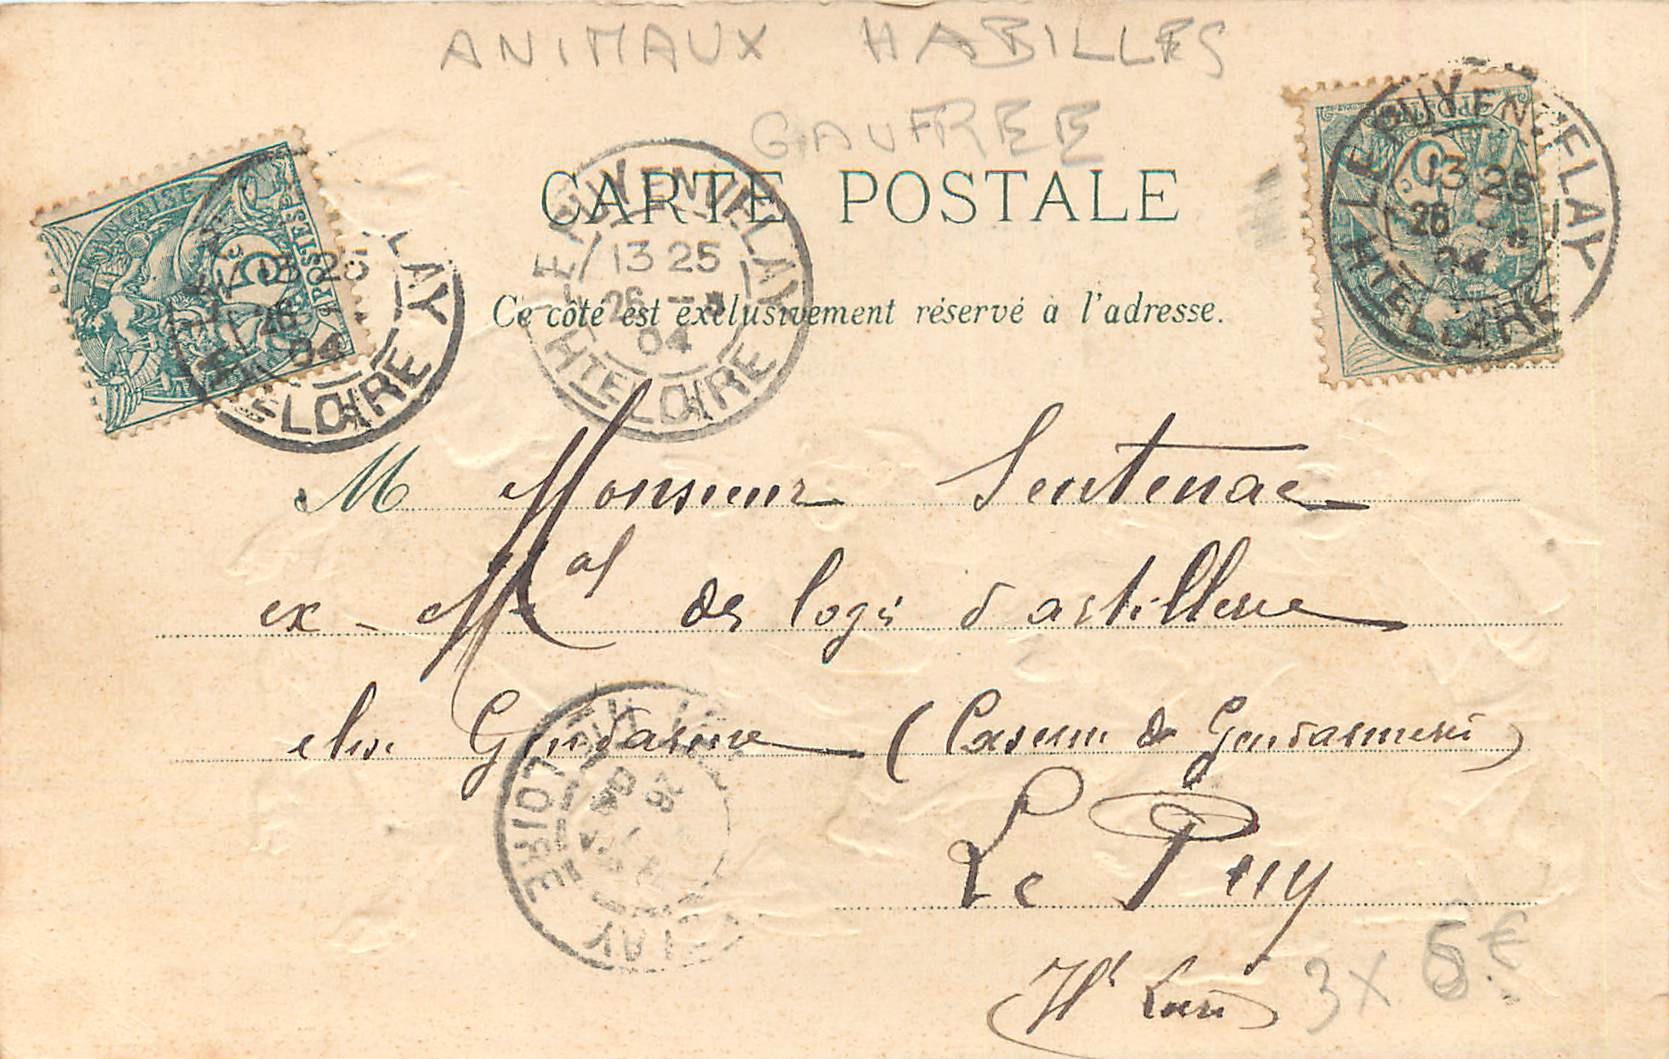 ANIMAUX HABILLES
GAUFREE
CARTE POSTALE
Ce côté est exclusivement réservé à l'adresse.
LE PUY-EN-VELAY
13 25
26
04
HTE LOIRE
LE PUY-EN-VELAY
13 25
26
04
HTE LOIRE
5 c
POSTES
LAY
26
04
LOIRE
M Monsieur Sentenac
ex-Mal des logis d'artillerie
Gendarme (Caserne de Gendarmerie)
Le Puy
Hte Loire
26
04
LOIRE
3 x 5 €